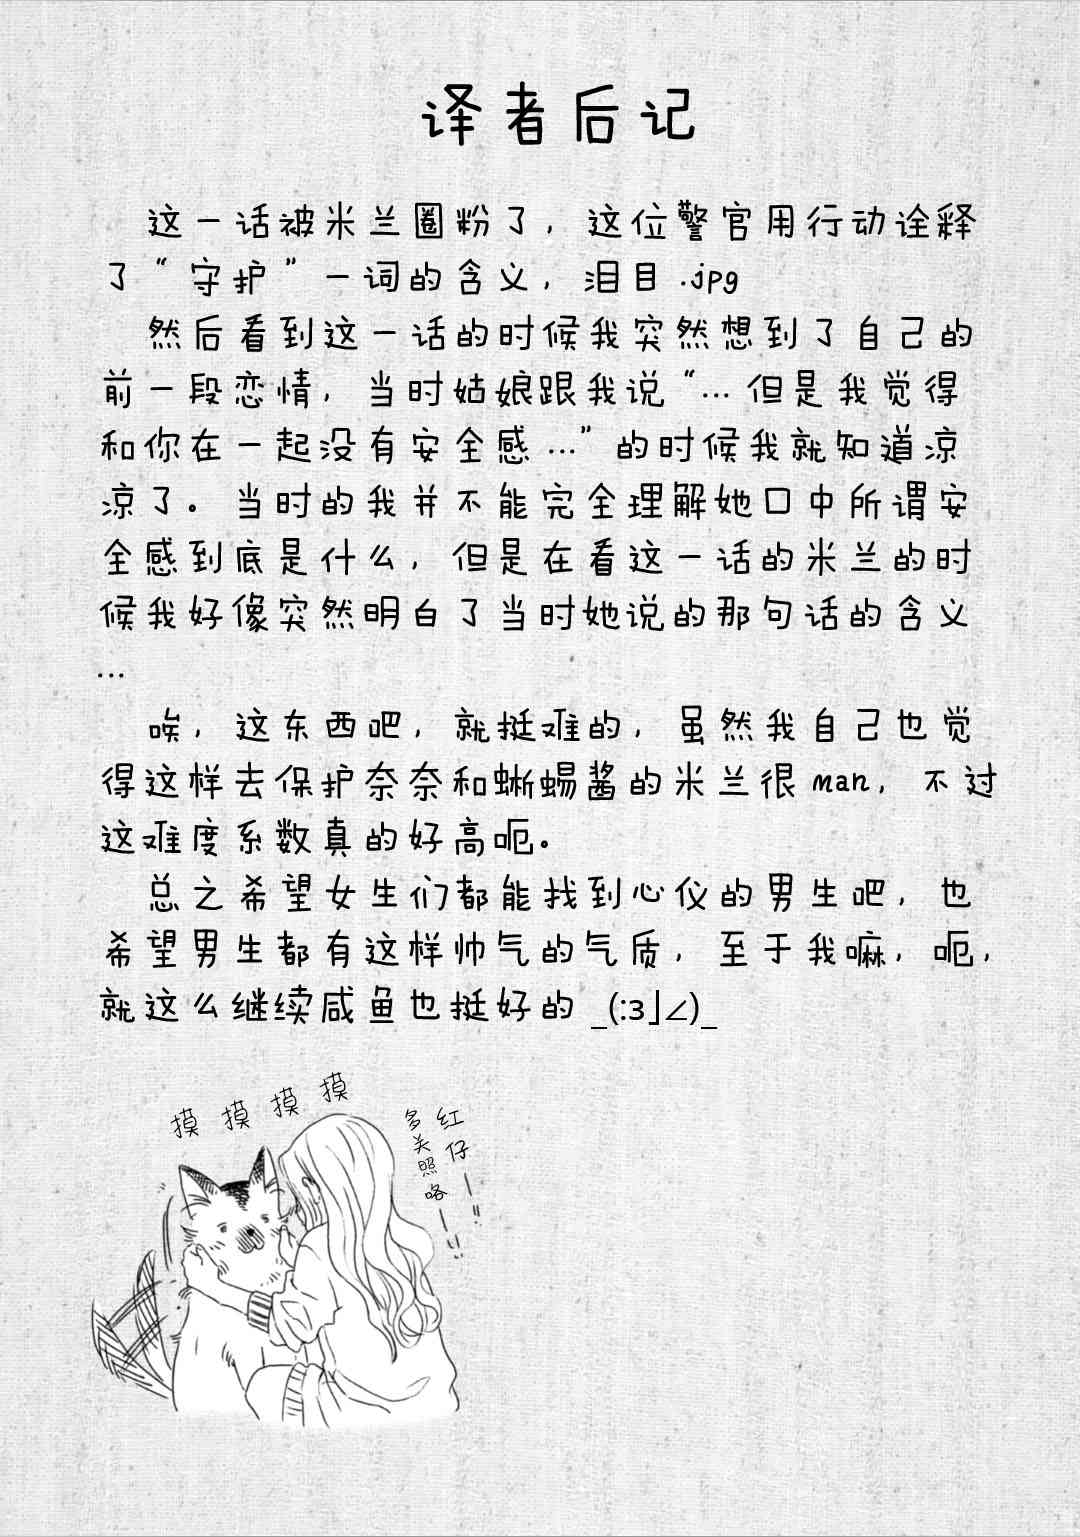 译者后记
这一话被米兰圈粉了，这位警官用行动诠释
了“守护”一词的含义，泪目.jpg
然后看到这一话的时候我突然想到了自己的
前一段恋情，当时姑娘跟我说“…但是我觉得
和你在一起没有安全感…”的时候我就知道凉
凉了。当时的我并不能完全理解她口中所谓安
全感到底是什么，但是在看这一话的米兰的时
候我好像突然明白了当时她说的那句话的含义
…
唉，这东西吧，就挺难的，虽然我自己也觉
得这样去保护奈奈和蜥蜴酱的米兰很man，不过
这难度系数真的好高呃。
总之希望女生们都能找到心仪的男生吧，也
希望男生都有这样帅气的气质，至于我嘛，呃，
就这么继续咸鱼也挺好的 _(:з」∠)_
摸摸摸摸
红仔——!!
多关照咯——!!